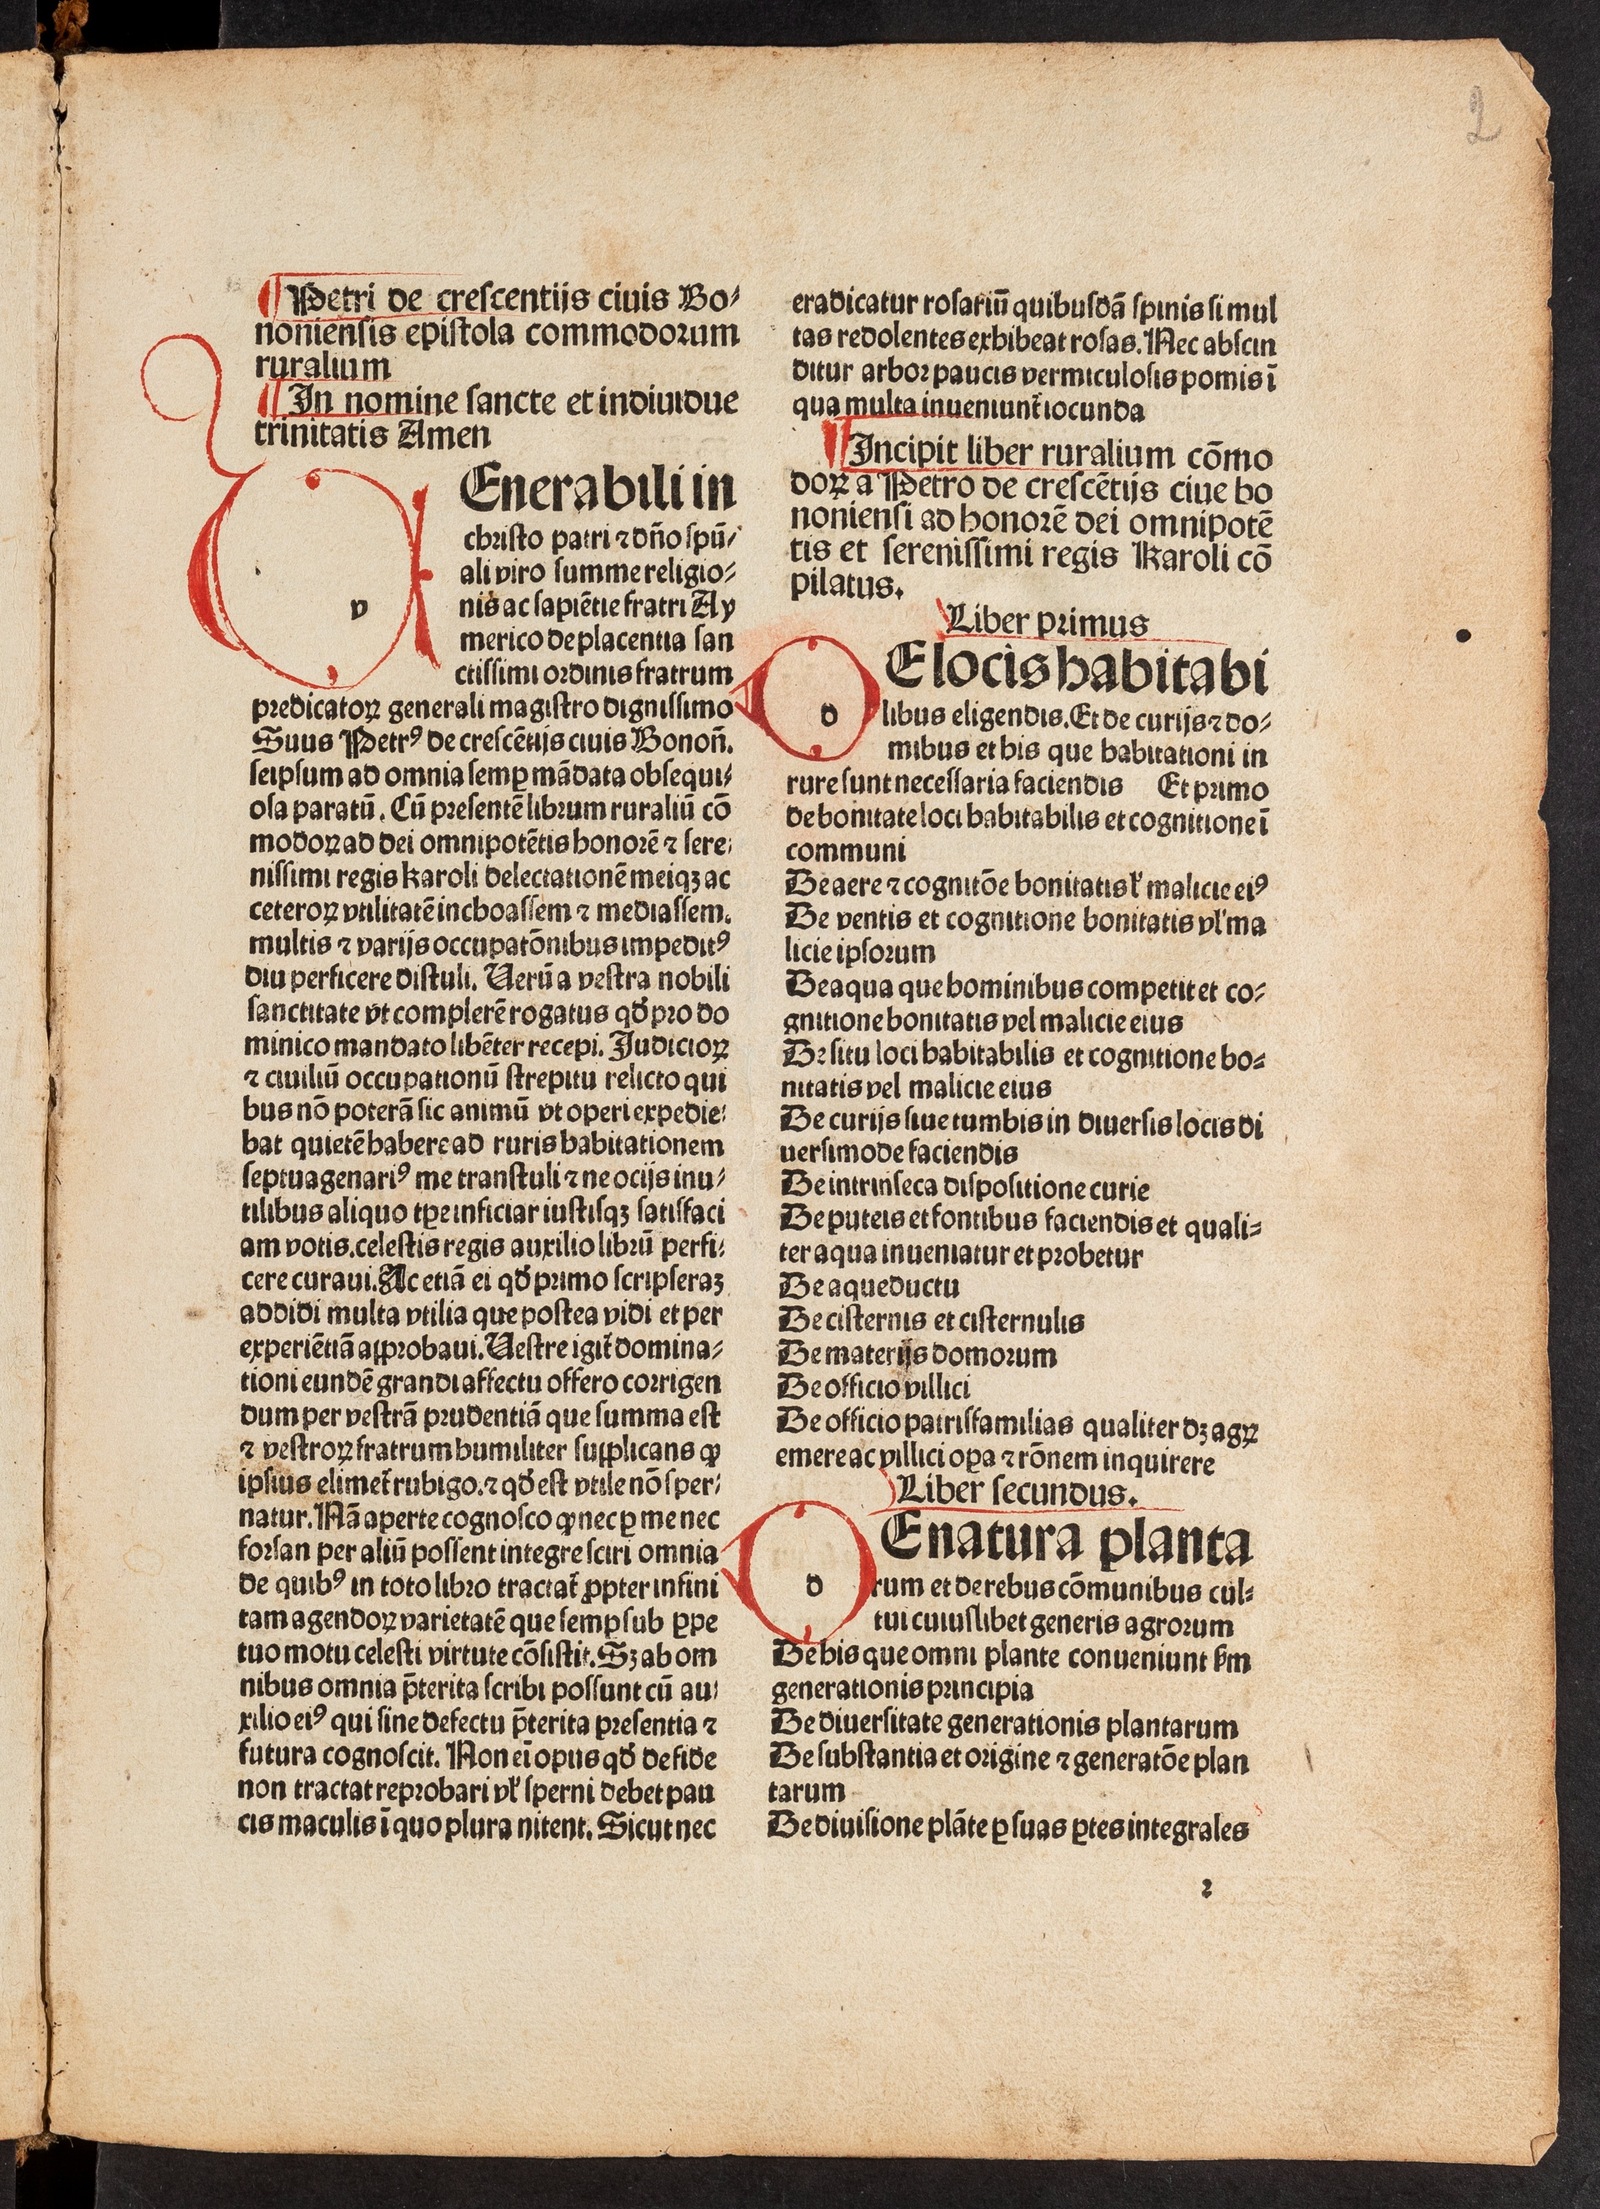 2
¶ Petri de crescentijs ciuis Bo⸗
noniensis epistola commodorum
ruralium
¶ In nomine sancte et indiuidue
trinitatis Amen
v
Enerabili in
christo patri ⁊ dño spũ⸗
ali viro summe religio⸗
nis ac sapiẽtie fratri Ay
merico de placentia san
ctissimi ordinis fratrum
predicatoꝝ generali magistro dignissimo
Suus Petrꝰ de crescẽtijs ciuis Bonoñ.
seipsum ad omnia semꝑ mãdata obsequi⸗
osa paratũ. Cũ presentẽ librum ruraliũ cõ
modoꝝ ad dei omnipotẽtis honorẽ ⁊ sere⸗
nissimi regis karoli delectationẽ meiqꝫ ac
ceteroꝝ vtilitatẽ inchoassem ⁊ mediassem.
multis ⁊ varijs occupatõnibus impeditꝰ
diu perficere distuli. Uerũ a vestra nobili
sanctitate vt complerẽ rogatus qď pro do
minico mandato libẽter recepi. Judicioꝝ
⁊ ciuiliũ occupationũ strepitu relicto qui
bus nõ poterã sic animũ vt operi expedie⸗
bat quietẽ habere ad ruris habitationem
septuagenariꝰ me transtuli ⁊ ne ocijs inu⸗
tilibus aliquo tꝑe inficiar iustisqꝫ satisfaci
am votis. celestis regis auxilio librũ perfi⸗
cere curaui. Ac etiã ei qď primo scripseraꝫ
addidi multa vtilia que postea vidi et per
experiẽtiã approbaui. Uestre igit̃ domina⸗
tioni eundẽ grandi affectu offero corrigen
dum per vestrã prudentiã que summa est
⁊ vestroꝝ fratrum humiliter supplicans ꝙ
ipsius elimet̃ rubigo. ⁊ qď est vtile nõ sper⸗
natur. Nã aperte cognosco ꝙ nec ꝑ me nec
forsan per aliũ possent integre sciri omnia
de quibꝰ in toto libro tractat̃ ꝓpter infini
tam agendoꝝ varietatẽ que semꝑ sub ꝑpe
tuo motu celesti virtute cõsistit. Sꝫ ab om
nibus omnia p̃terita scribi possunt cũ au⸗
xilio eiꝰ qui sine defectu p̃terita presentia ⁊
futura cognoscit. Non eĩ opus qď de fide
non tractat reprobari vꝉ sperni debet pau
cis maculis ĩ quo plura nitent. Sicut nec
eradicatur rosariũ quibusdã spinis si mul
tas redolentes exhibeat rosas. Nec abscin
ditur arbor paucis vermiculosis pomis ĩ
qua multa inueniunt̃ iocunda
¶ Incipit liber ruralium cõmo
doꝝ a Petro de crescẽtijs ciue bo
noniensi ad honorẽ dei omnipotẽ
tis et serenissimi regis Karoli cõ
pilatus.
Liber primus
d
E locis habitabi
libus eligendis. Et de curijs ⁊ do⸗
mibus et his que habitationi in
rure sunt necessaria faciendis Et primo
de bonitate loci habitabilis et cognitione ĩ
communi
De aere ⁊ cognitõe bonitatis ꝉ malicie eiꝰ
De ventis et cognitione bonitatis vꝉ ma
licie ipsorum
De aqua que hominibus competit et co⸗
gnitione bonitatis vel malicie eius
De situ loci habitabilis et cognitione bo⸗
nitatis vel malicie eius
De curijs siue tumbis in diuersis locis di
uersimode faciendis
De intrinseca dispositione curie
De puteis et fontibus faciendis et quali⸗
ter aqua inueniatur et probetur
De aqueductu
De cisternis et cisternulis
De materijs domorum
De officio villici
De officio patrisfamilias qualiter dꝫ agꝝ
emere ac villici oꝑa ⁊ rõnem inquirere
Liber secundus.
d
E natura planta
rum et de rebus cõmunibus cul⸗
tui cuiuslibet generis agrorum
De his que omni plante conueniunt ẜm
generationis principia
De diuersitate generationis plantarum
De substantia et origine ⁊ generatõe plan
tarum
De diuisione plãte ꝑ suas ꝑtes integrales
2